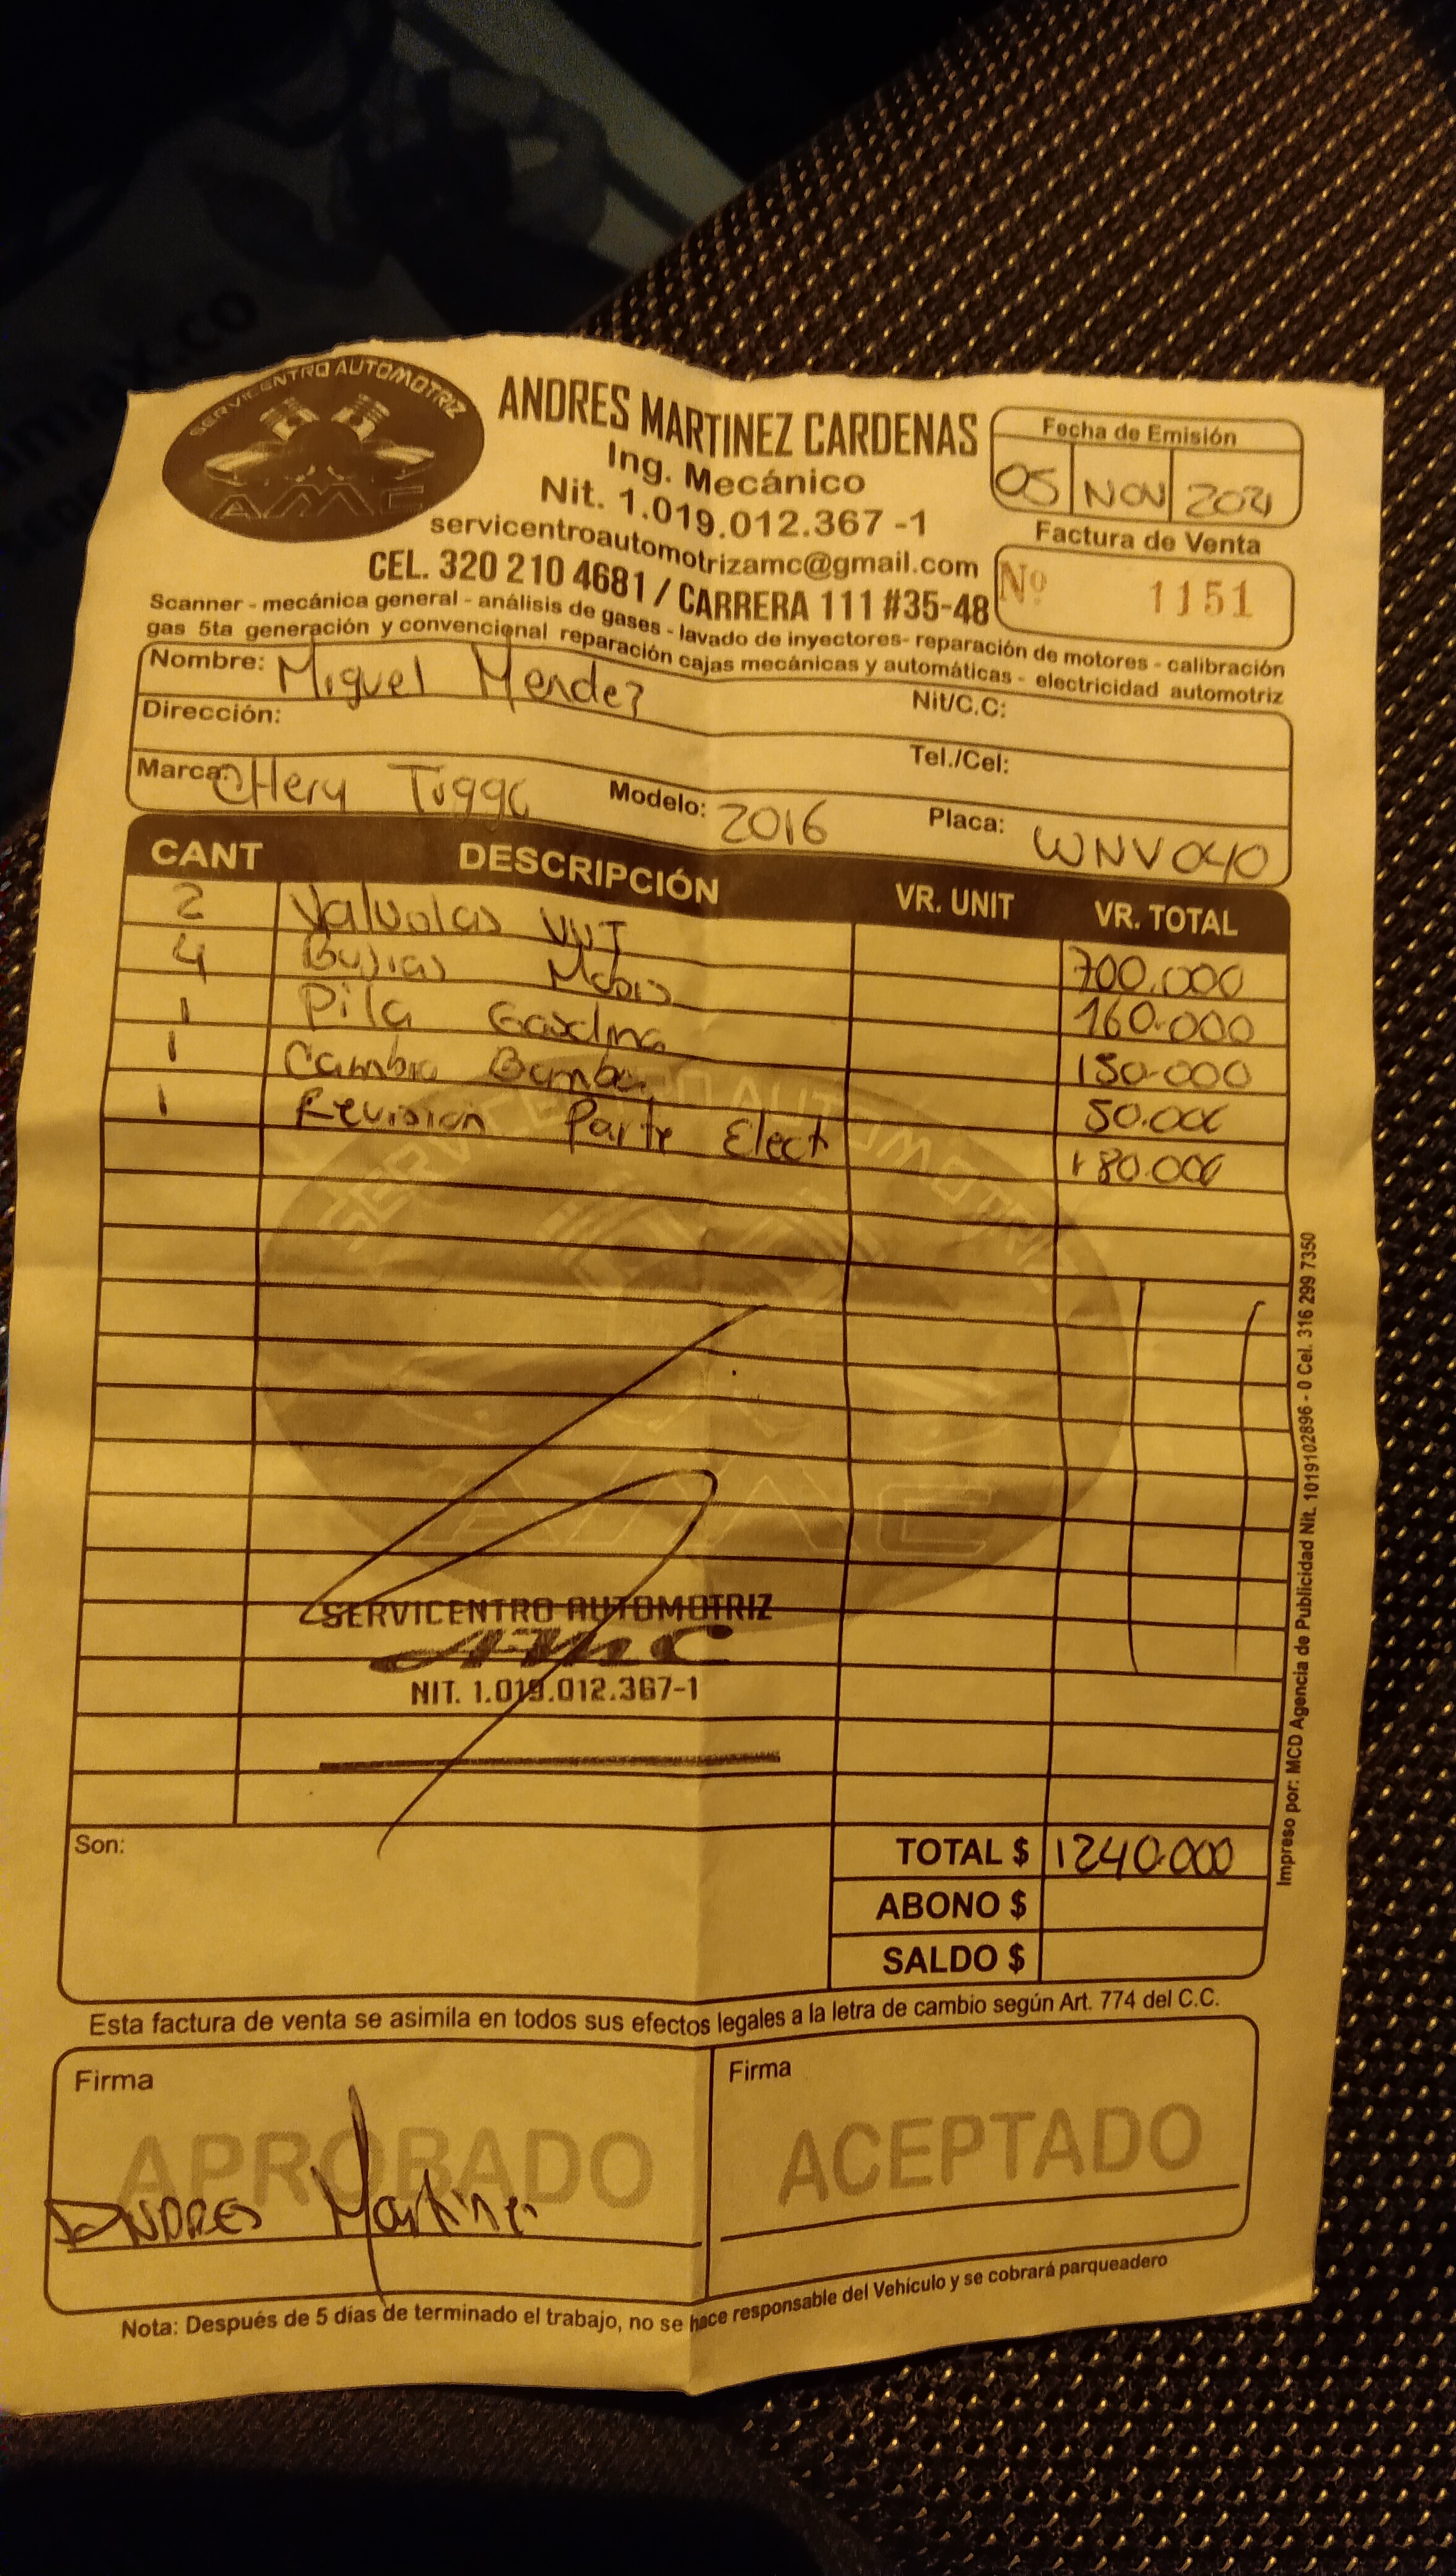 SERVICENTRO AUTOMOTRIZ
AMC
ANDRES MARTINEZ CARDENAS
Ing. Mecánico
Nit. 1.019.012.367 -1
servicentroautomotrizamc@gmail.com
CEL. 320 210 4681 / CARRERA 111 #35-48
Fecha de Emisión
05 NOV 2021
Factura de Venta
Nº 1151
Scanner - mecánica general - análisis de gases - lavado de inyectores- reparación de motores - calibración
gas 5ta generación y convencional reparación cajas mecánicas y automáticas - electricidad automotriz
Nombre: Miguel Mendez Nit/C.C:
Dirección: Tel./Cel:
Marca: CHery Tiggo Modelo: 2016 Placa: WNV040
CANT DESCRIPCIÓN VR. UNIT VR. TOTAL
2 Valvulas VVT 700.000
4 Bujias 160.000
1 Pila Gasolina 150.000
1 Cambio Bomba 50.000
1 Revision Parte Elect 180.000
SERVICENTRO AUTOMOTRIZ
AMC
SERVICENTRO AUTOMOTRIZ
AMC
NIT. 1.019.012.367-1
Son:
TOTAL $ 1240.000
ABONO $
SALDO $
Esta factura de venta se asimila en todos sus efectos legales a la letra de cambio según Art. 774 del C.C.
Firma
APROBADO
ANDRES Martinez
Firma
ACEPTADO
Nota: Después de 5 días de terminado el trabajo, no se hace responsable del Vehículo y se cobrará parqueadero
Impreso por: MCD Agencia de Publicidad Nit. 1019102896 - 0 Cel. 316 299 7350